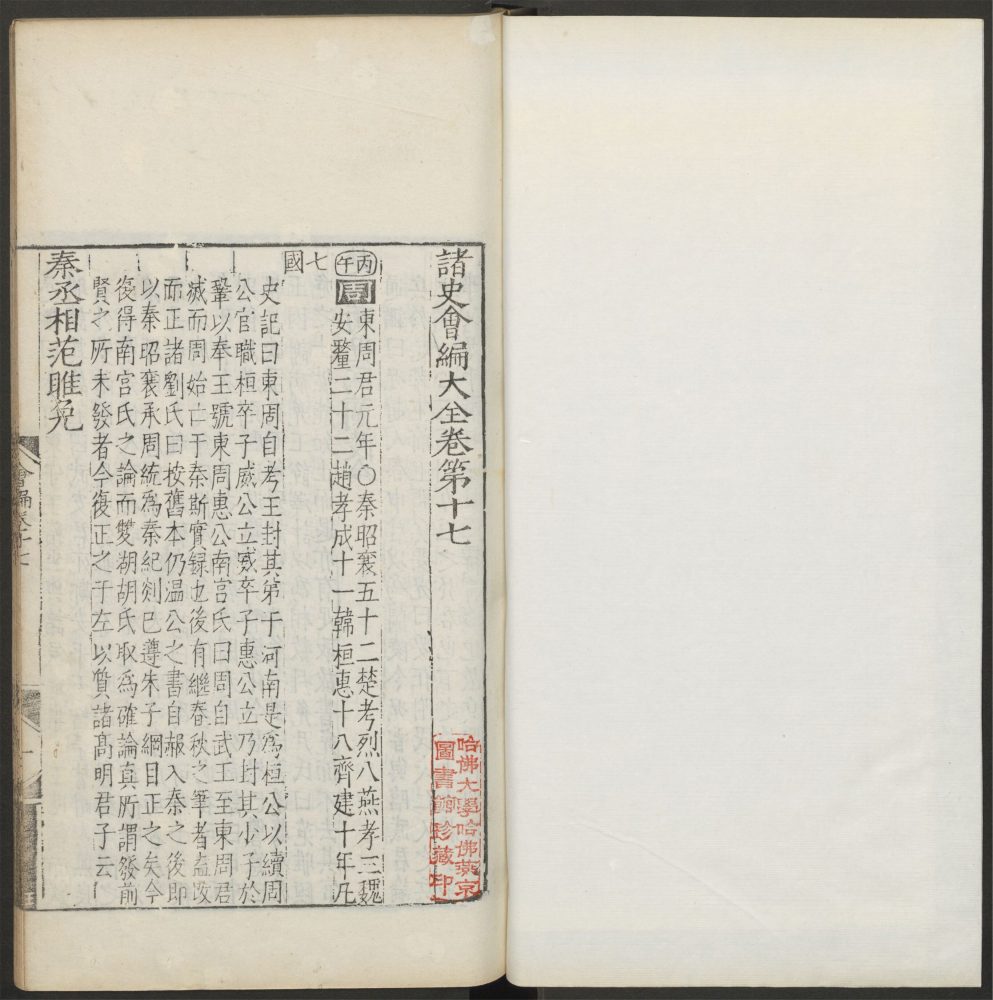 諸史會編大全卷第十七
哈佛大學哈佛燕京
圖書館珍藏印
丙午
周東周君元年〇秦昭襄五十二楚考烈八燕孝三魏
安釐二十二趙孝成十一韓桓惠十八齊建十年凡
七國
史記曰東周自考王封其弟于河南是爲桓公以續周
公官職桓卒子威公立威卒子惠公立乃封其少子於
鞏以奉王號東周惠公南宮氏曰周自武王至東周君
滅而周始亡于秦斯實録也後有繼春秋之筆者盍改
而正諸劉氏曰按舊本仍温公之書自赧入秦之後即
以秦昭襄承周統爲秦紀剡已遵朱子綱目正之矣今
復得南宮氏之論而雙湖胡氏取爲確論真所謂發前
賢之所未發者今復正之于左以質諸髙明君子云
秦丞相范雎免
會編卷十七